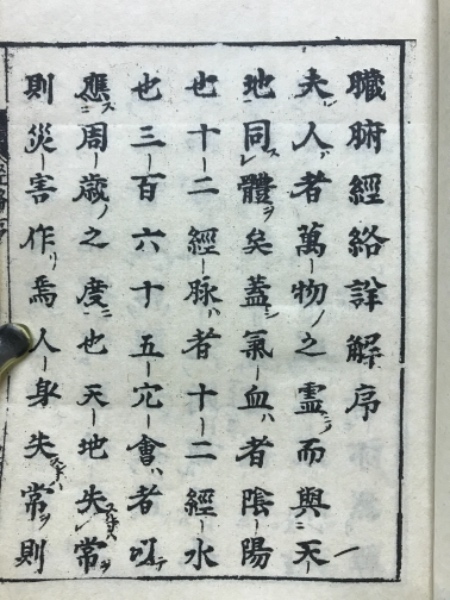 臓腑經絡詳解序
夫人者萬物之靈而與天
地同體矣蓋氣血者陰陽
也十二經脉者十二經水
也三百六十五穴會者以
應周歲之度也天地失常
則災害作焉人身失常則